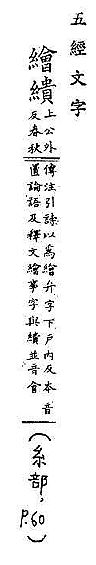 五經文字
繪繢
上公外反春秋
傳注引詩以為繪升字下戶內反本音
匱論語及釋文繪事字與繢並音會
(糸部, P.60)